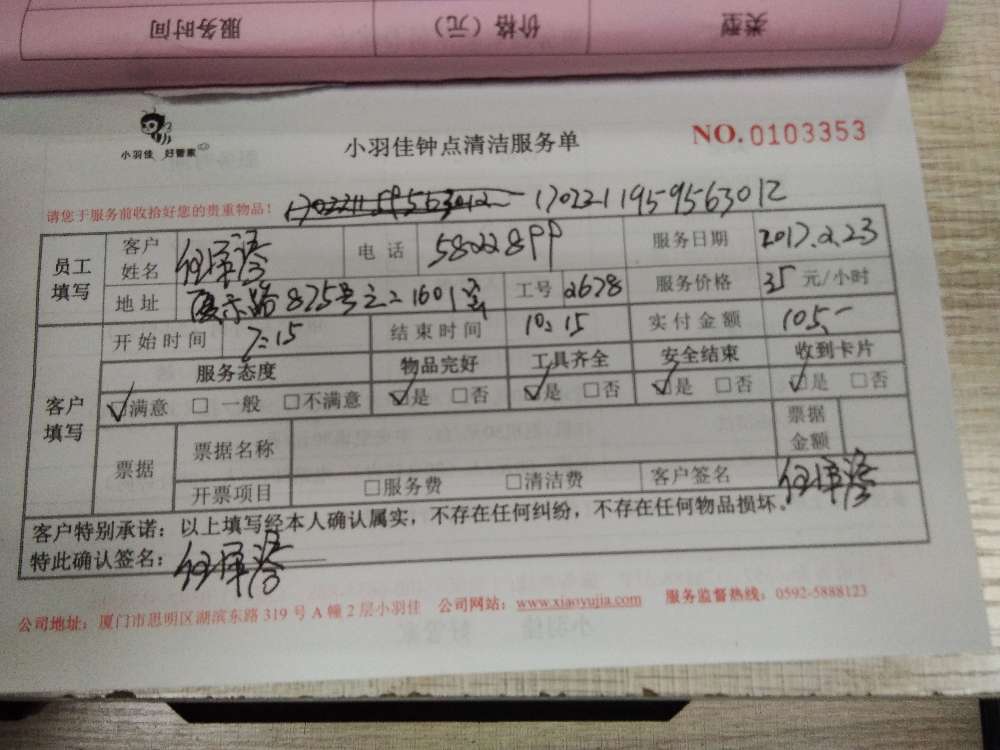 服务时间 价格（元） 类型
小羽佳 好管家
小羽佳钟点清洁服务单
NO.0103353
请您于服务前收拾好您的贵重物品！ 1702211959563012
员工填写 客户姓名 电话 5802899 服务日期 2017.2.23
地址 厦禾路875号之二1601室 工号 2678 服务价格 35 元/小时
客户填写 开始时间 7:15 结束时间 10:15 实付金额 105.-
服务态度 物品完好 工具齐全 安全结束 收到卡片
☑满意 □ 一般 □不满意 ☑是 □否 ☑是 □否 ☑是 □否 ☑是 □否
票据 票据名称 票据金额
开票项目 □服务费 □清洁费 客户签名
客户特别承诺：以上填写经本人确认属实，不存在任何纠纷，不存在任何物品损坏。
特此确认签名：
公司地址：厦门市思明区湖滨东路 319 号 A 幢 2 层小羽佳 公司网站：www.xiaoyujia.com 服务监督热线：0592-5888123